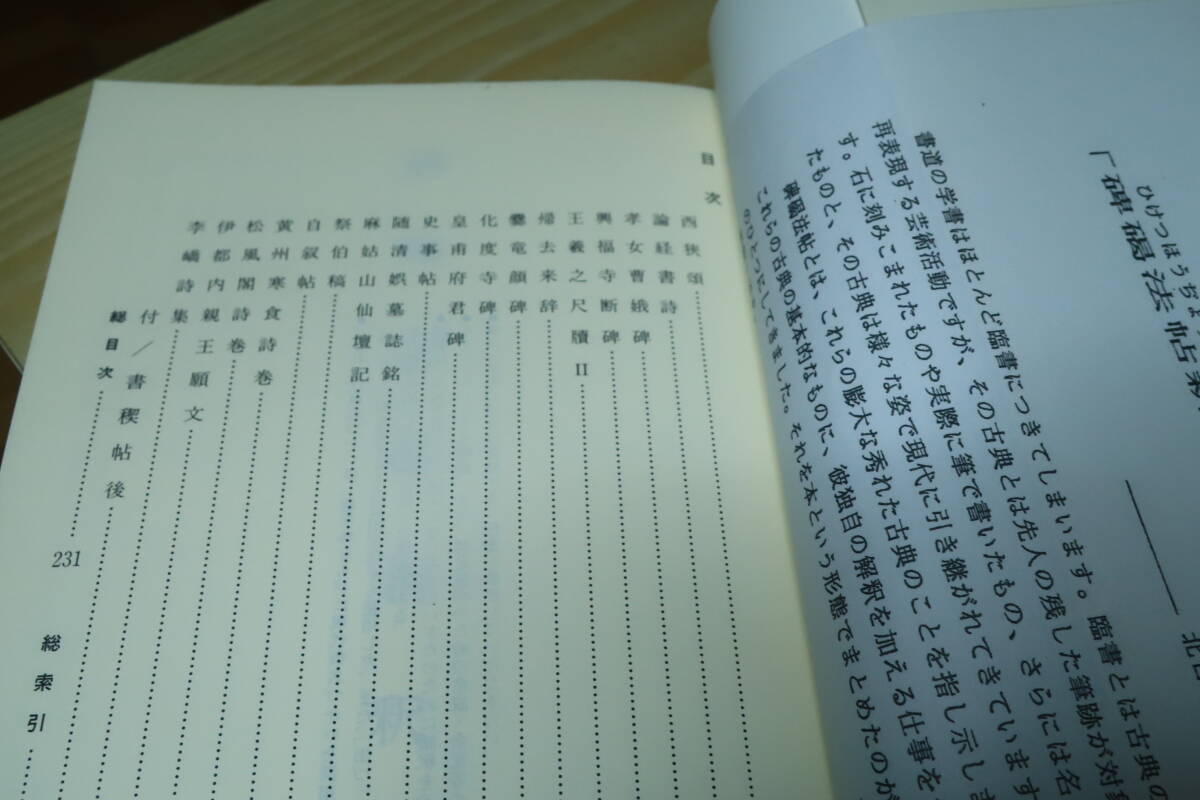 ひけつほうぢょ
「碑碣法帖
書道の学書はほとんど臨書につきてしまいます。臨書とは古典の
再表現する芸術活動ですが、その古典とは先人の残した筆跡が対象
す。石に刻みこまれたものや実際に筆で書いたもの、さらには名
たものと、その古典は様々な姿で現代に引き継がれてきています
碑碣法帖とは、これらの膨大な秀れた古典のことを指し示しま
これらの古典の基本的なものに、彼独自の解釈を加える仕事を
のひとつにしてきました。それを本という形態でまとめたのが
目次
西狭頌
論経書詩
孝女曹娥碑
興福寺断碑
王羲之尺牘Ⅱ
帰去来辞
爨竜顔碑
化度寺碑
皇甫府君碑
史事帖
随清娯墓誌銘
麻姑山仙壇記
祭伯稿
自叙帖
黄州寒食詩巻
松風閣詩巻
伊都内親王願文
李嶠詩集
付/書禊帖後
総目次
231
総索引